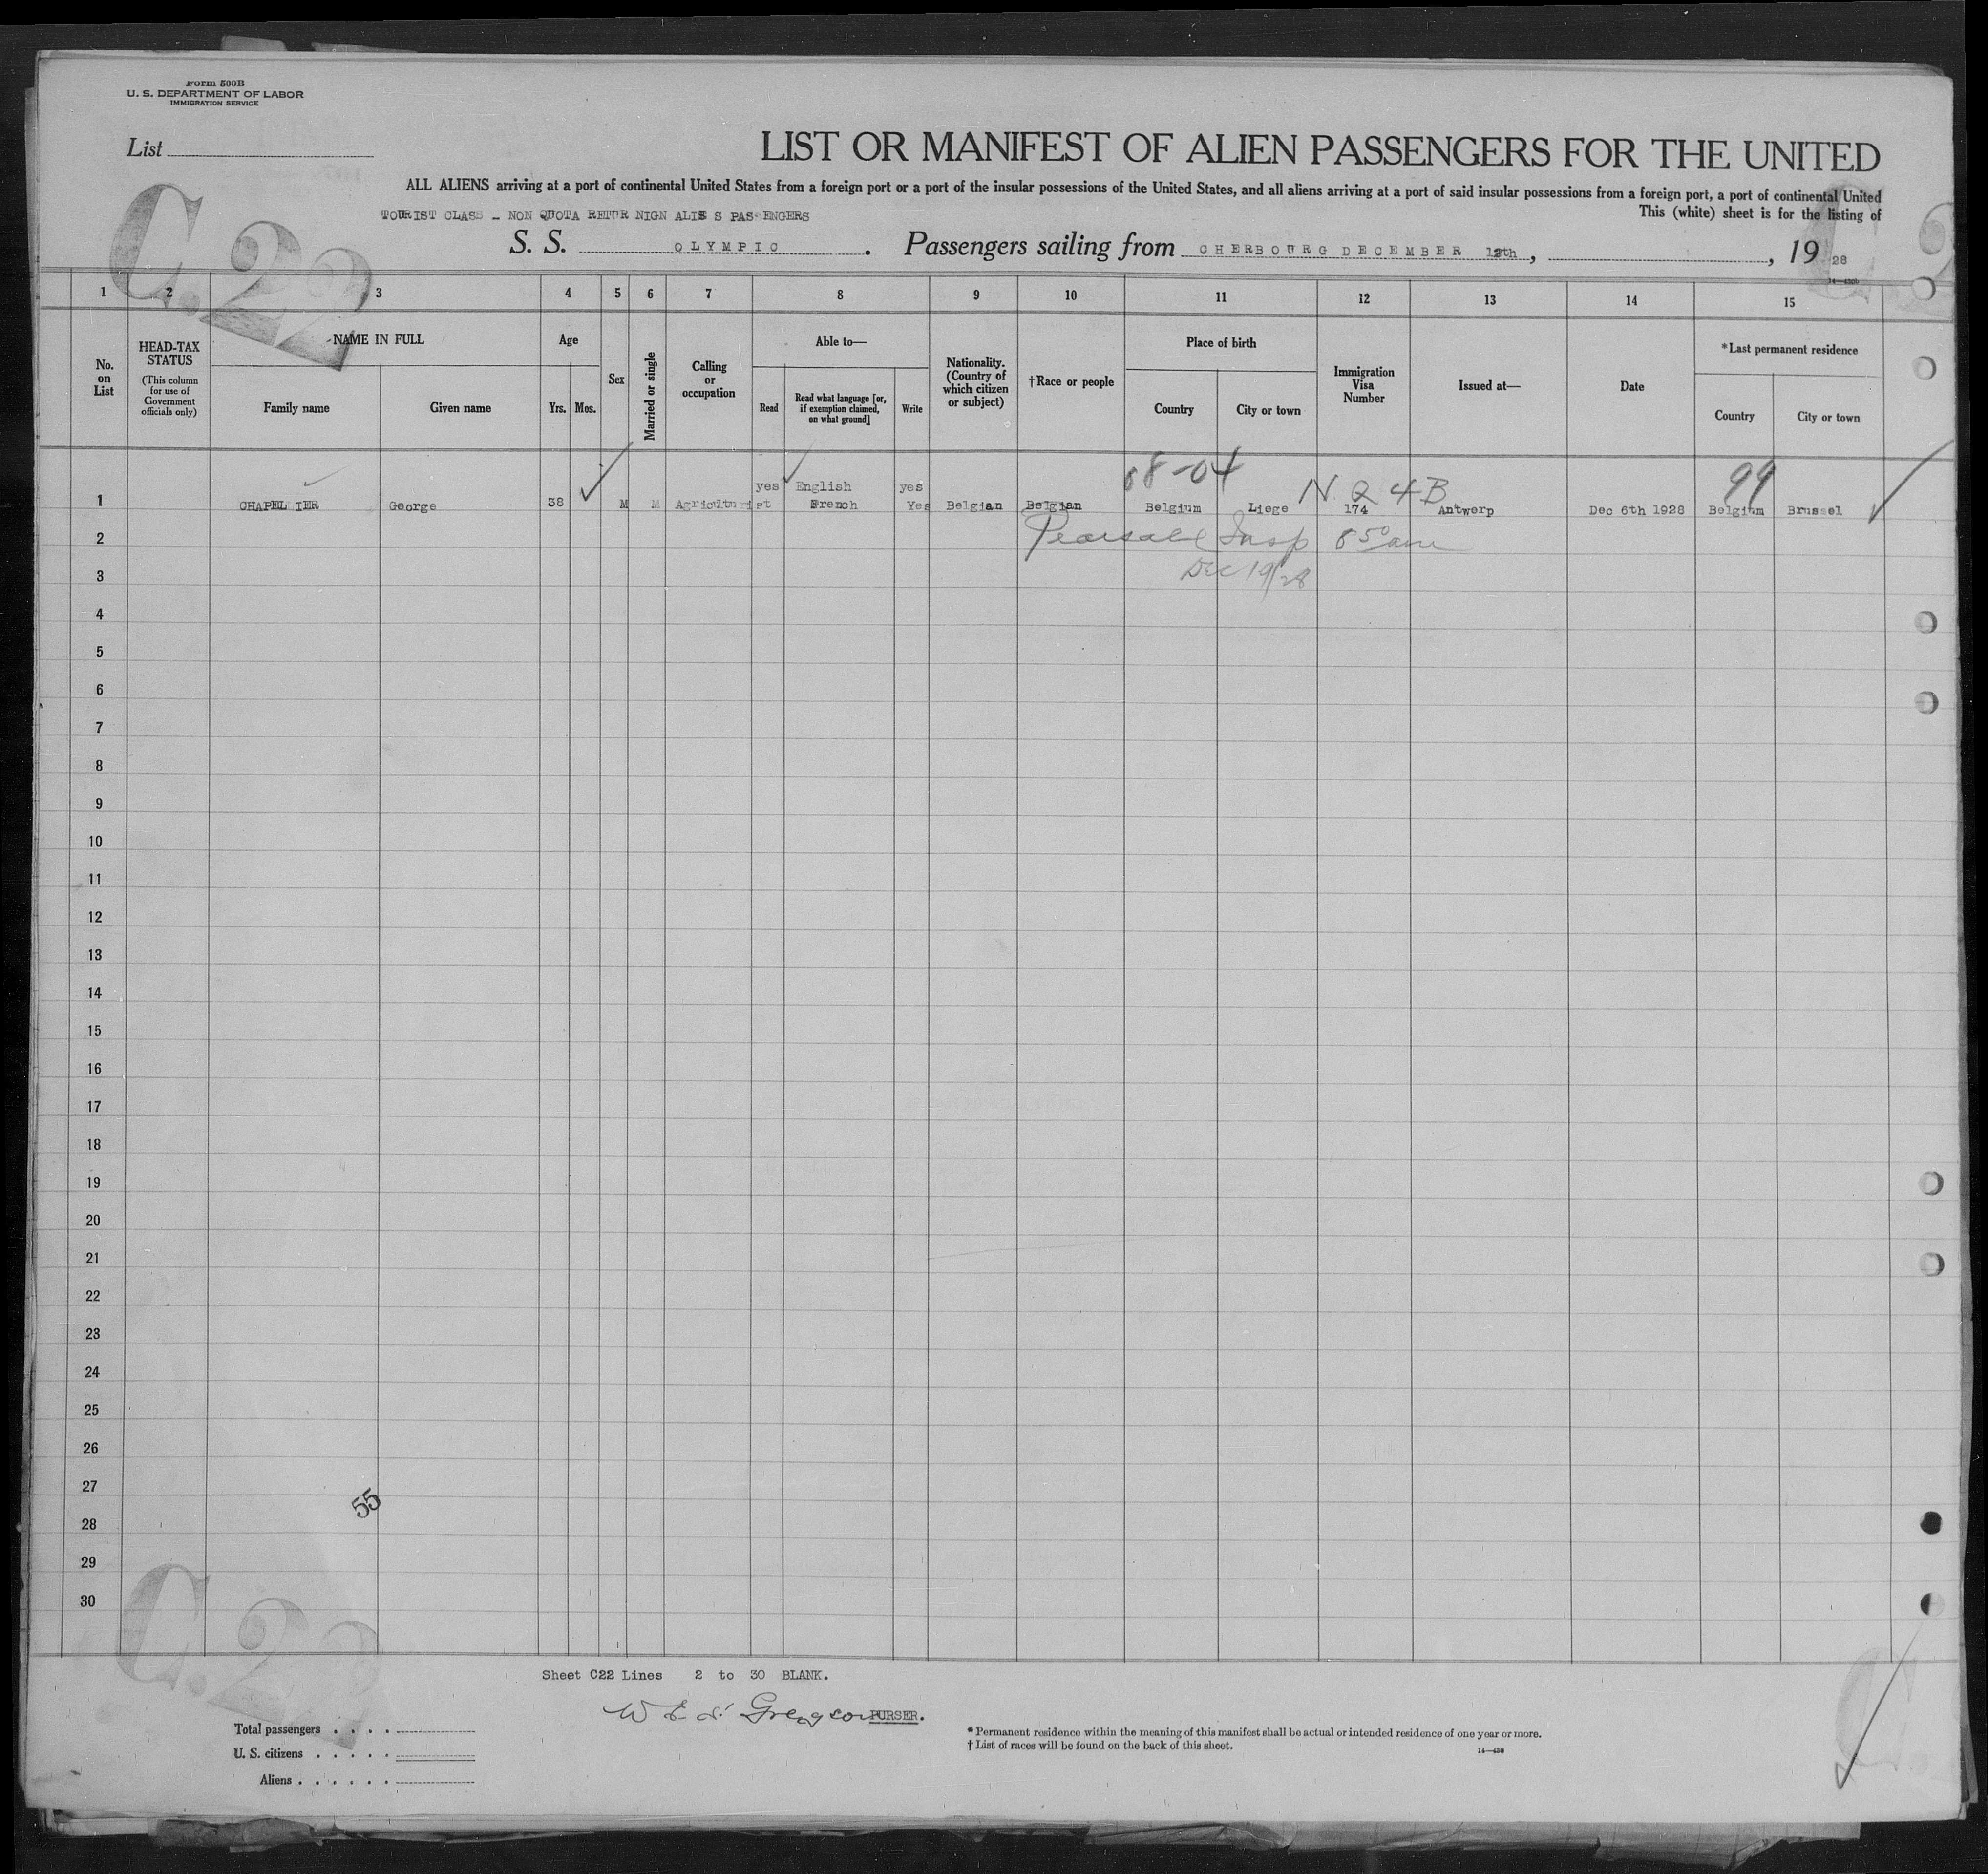 Form 500B
U. S. DEPARTMENT OF LABOR
IMMIGRATION SERVICE
List
LIST OR MANIFEST OF ALIEN PASSENGERS FOR THE UNITED
ALL ALIENS arriving at a port of continental United States from a foreign port or a port of the insular possessions of the United States, and all aliens arriving at a port of said insular possessions from a foreign port, a port of continental United
TOURIST CLASS - NON QUOTA RETUR NIGN ALIE S PASSENGERS
This (white) sheet is for the listing of
C.22
S. S. OLYMPIC. Passengers sailing from CHERBOURG DECEMBER 12th, , 19 28
1 2 3 4 5 6 7 8 9 10 11 12 13 14 15
No. on List
HEAD-TAX STATUS
(This column for use of Government officials only)
NAME IN FULL
Family name
Given name
Age
Yrs.
Mos.
Sex
Married or single
Calling or occupation
Able to—
Read
Read what language [or, if exemption claimed, on what ground]
Write
Nationality. (Country of which citizen or subject)
†Race or people
Place of birth
Country
City or town
Immigration Visa Number
Issued at—
Date
*Last permanent residence
Country
City or town
yes English yes
N.Q 4B
99
1 CHAPELIER George 38 M M Agriculturist French Yes Belgian Belgian Belgium Liege 174 Antwerp Dec 6th 1928 Belgium Brussel
2
Pearsall Insp 8 50 am
3
Dec 19/28
4
5
6
7
8
9
10
11
12
13
14
15
16
17
18
19
20
21
22
23
24
25
26
27
55
28
29
30
C.22
Sheet C22 Lines 2 to 30 BLANK.
PURSER.
Total passengers . . . .
U. S. citizens . . . . .
Aliens . . . . . .
* Permanent residence within the meaning of this manifest shall be actual or intended residence of one year or more.
† List of races will be found on the back of this sheet.